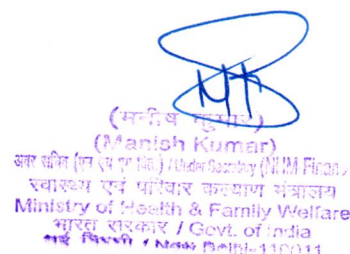 (मनीष कुमार)
(Manish Kumar)
अवर सचिव (एन एच एम वित्त) / Under Secretary (NHM Finance
स्वास्थ्य एवं परिवार कल्याण मंत्रालय
Ministry of Health & Family Welfare
भारत सरकार / Govt. of India
नई दिल्ली / New Delhi-110011